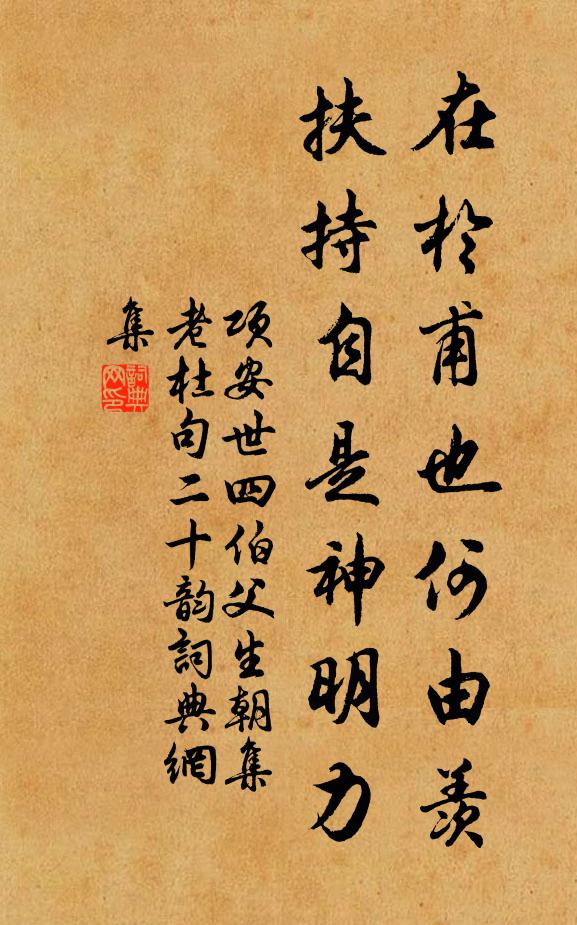 在於甫也何由羨
扶持自是神明力
項安世四伯父生朝集
老杜句二十韵詞典網
集
詞典網印